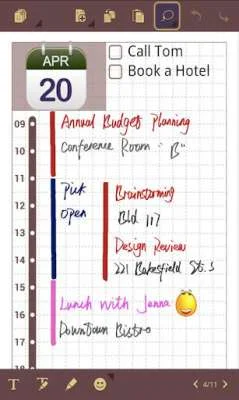 APR
20
Call Tom
Book a Hotel
09
Annual Budget Planning
10
Conference Room "B"
11
12
Pick
Brainstorming
13
Open
Bld 117
14
Design Review
221 Bakesfield St. S
15
16
Lunch with Jenna
17
Downtown Bistro
18
T
4/11